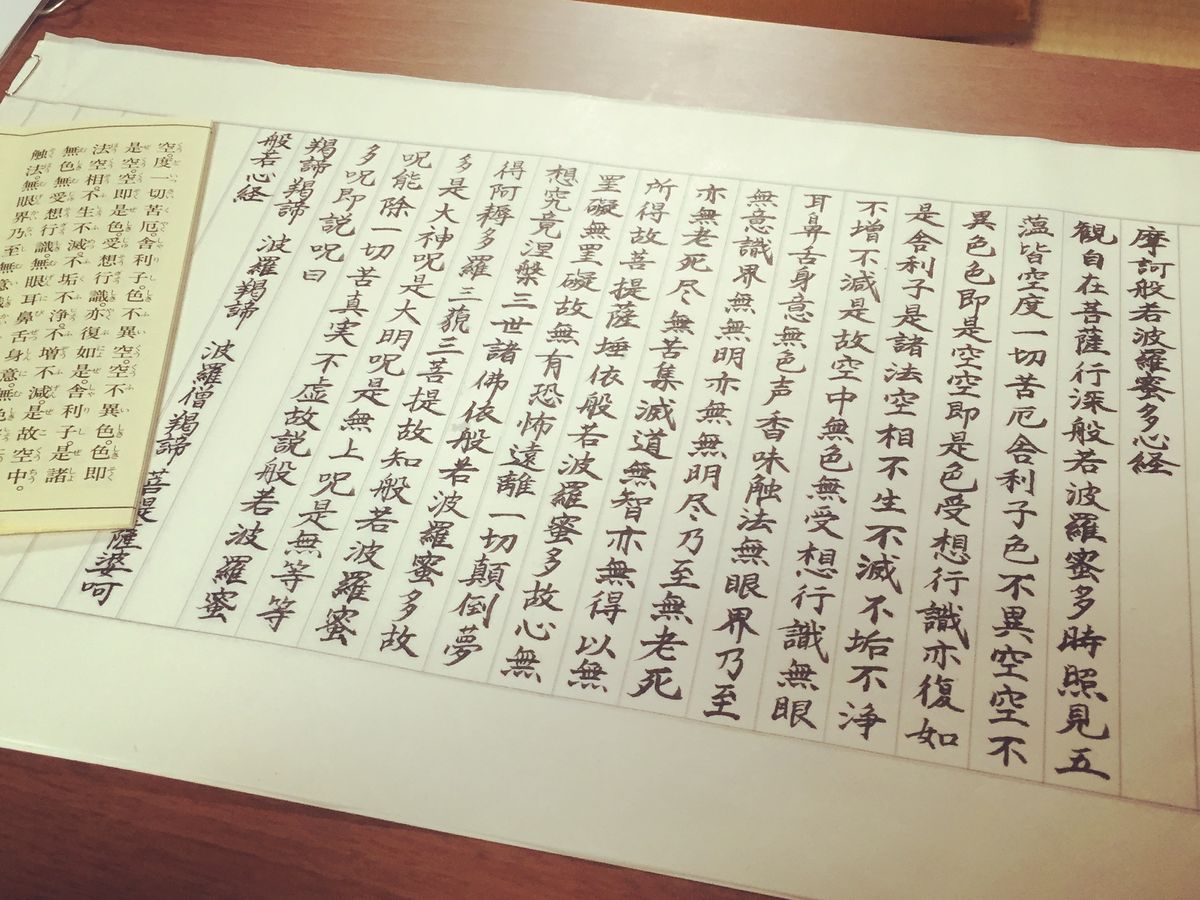 摩訶般若波羅蜜多心経
観自在菩薩行深般若波羅蜜多時照見五
薀皆空度一切苦厄舎利子色不異空空不
異色色即是空空即是色受想行識亦復如
是舎利子是諸法空相不生不滅不垢不浄
不増不減是故空中無色無受想行識無眼
耳鼻舌身意無色声香味触法無眼界乃至
無意識界無無明亦無無明尽乃至無老死
亦無老死尽無苦集滅道無智亦無得以無
所得故菩提薩埵依般若波羅蜜多故心無
罣礙無罣礙故無有恐怖遠離一切顛倒夢
想究竟涅槃三世諸佛依般若波羅蜜多故
得阿耨多羅三藐三菩提故知般若波羅蜜
多是大神呪是大明呪是無上呪是無等等
呪能除一切苦真実不虚故説般若波羅蜜
多呪即説呪曰
羯諦羯諦 波羅羯諦 波羅僧羯諦 菩提薩婆呵
般若心経
空度一切苦厄。舎利子。色不異空。空不異色。色即
是空。空即是色。受想行識亦復如是。舎利子。是諸
法空相。不生不滅。不垢不浄。不増不減。是故空中。
無色。無受想行識。無眼耳鼻舌身意。無色
触法。無眼界。乃至無意